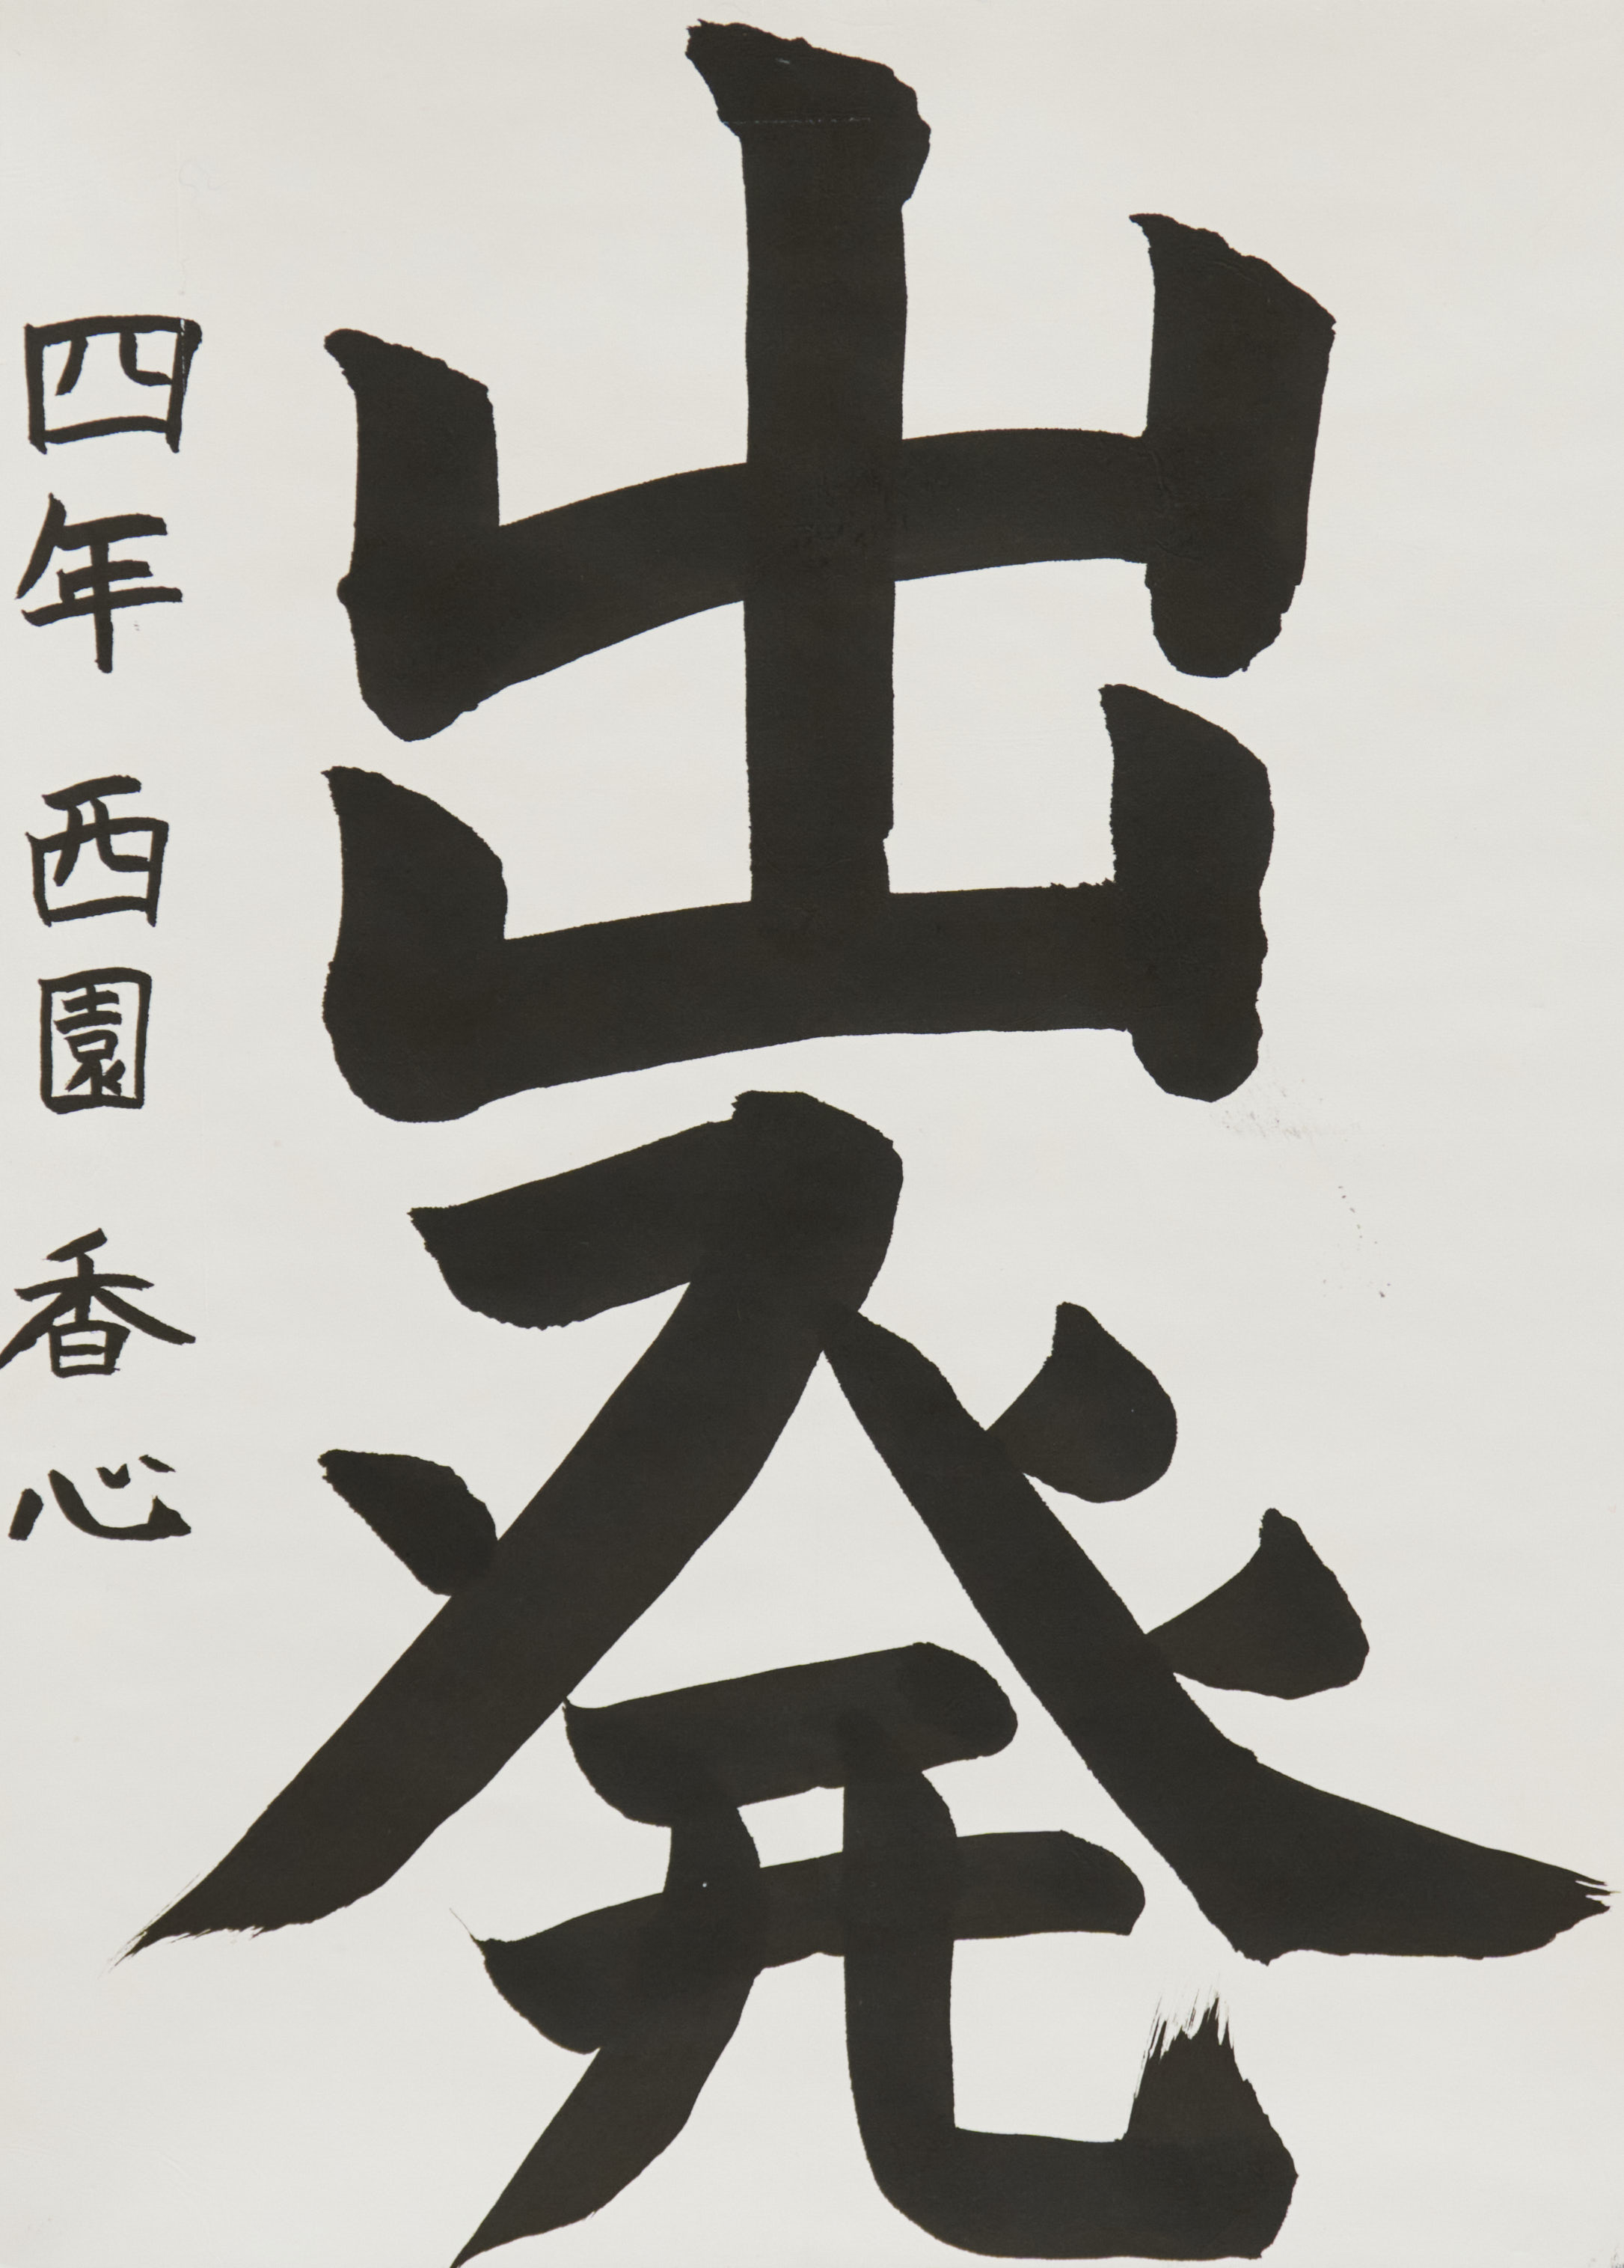 出発
四年 西園 香心